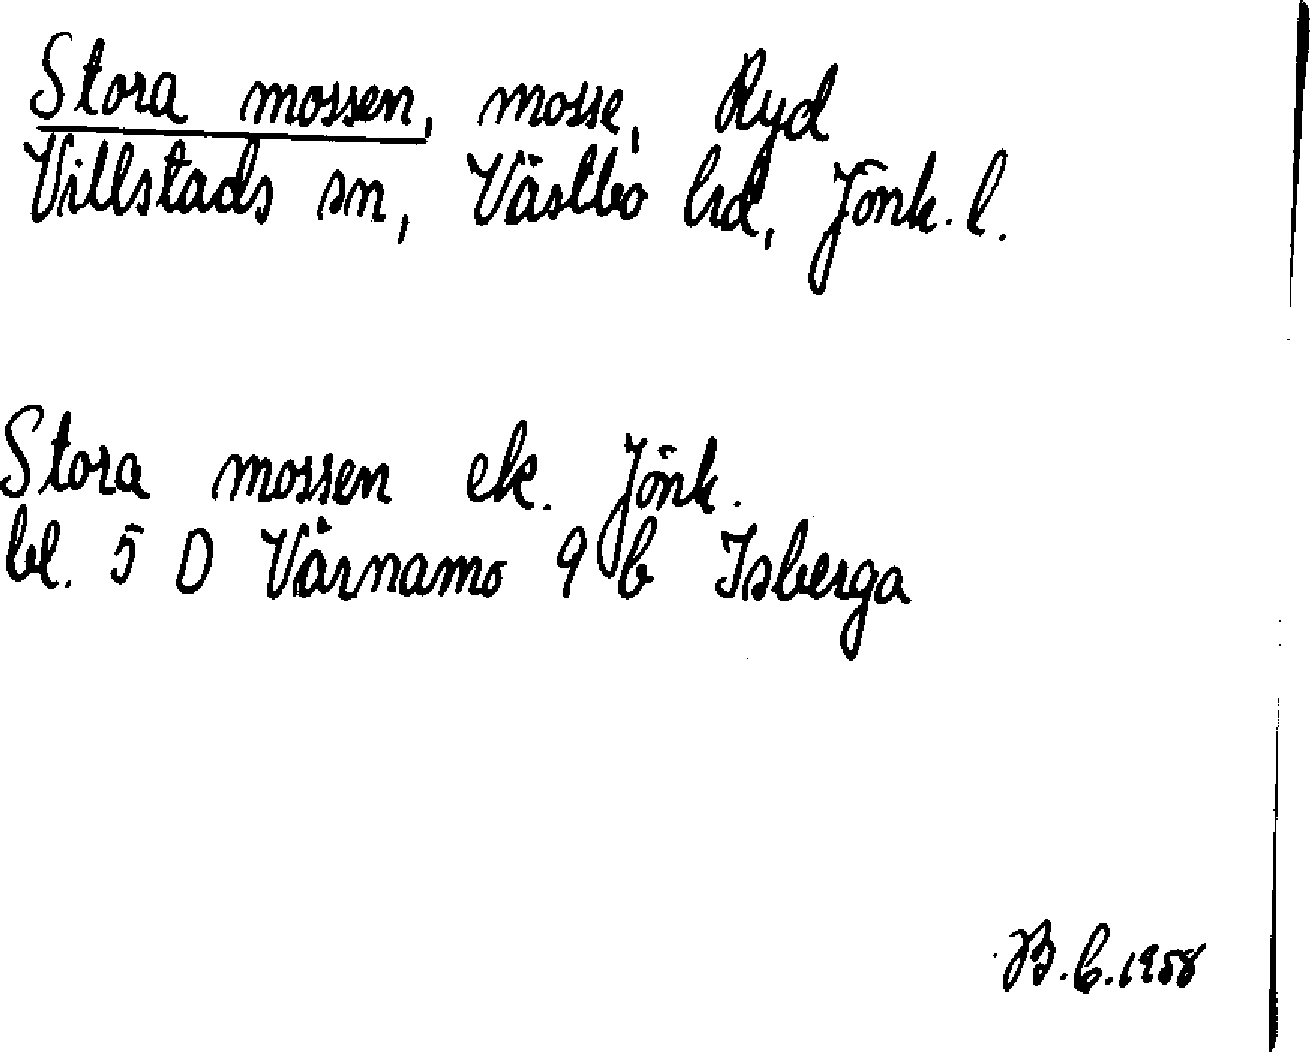 Stora mossen, mosse, Ryd
Villstads sn, Västbo hd, Jönk. l.
Stora mossen ek. Jönk.
bl. 5 D Värnamo 9 b Isberga
B.C.1958